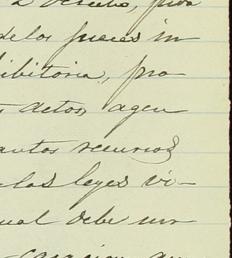 Derecho, para
de los jueces in
hibitoria, pro
s actos, agen
antos recursos
las leyes vi-
ual debe un